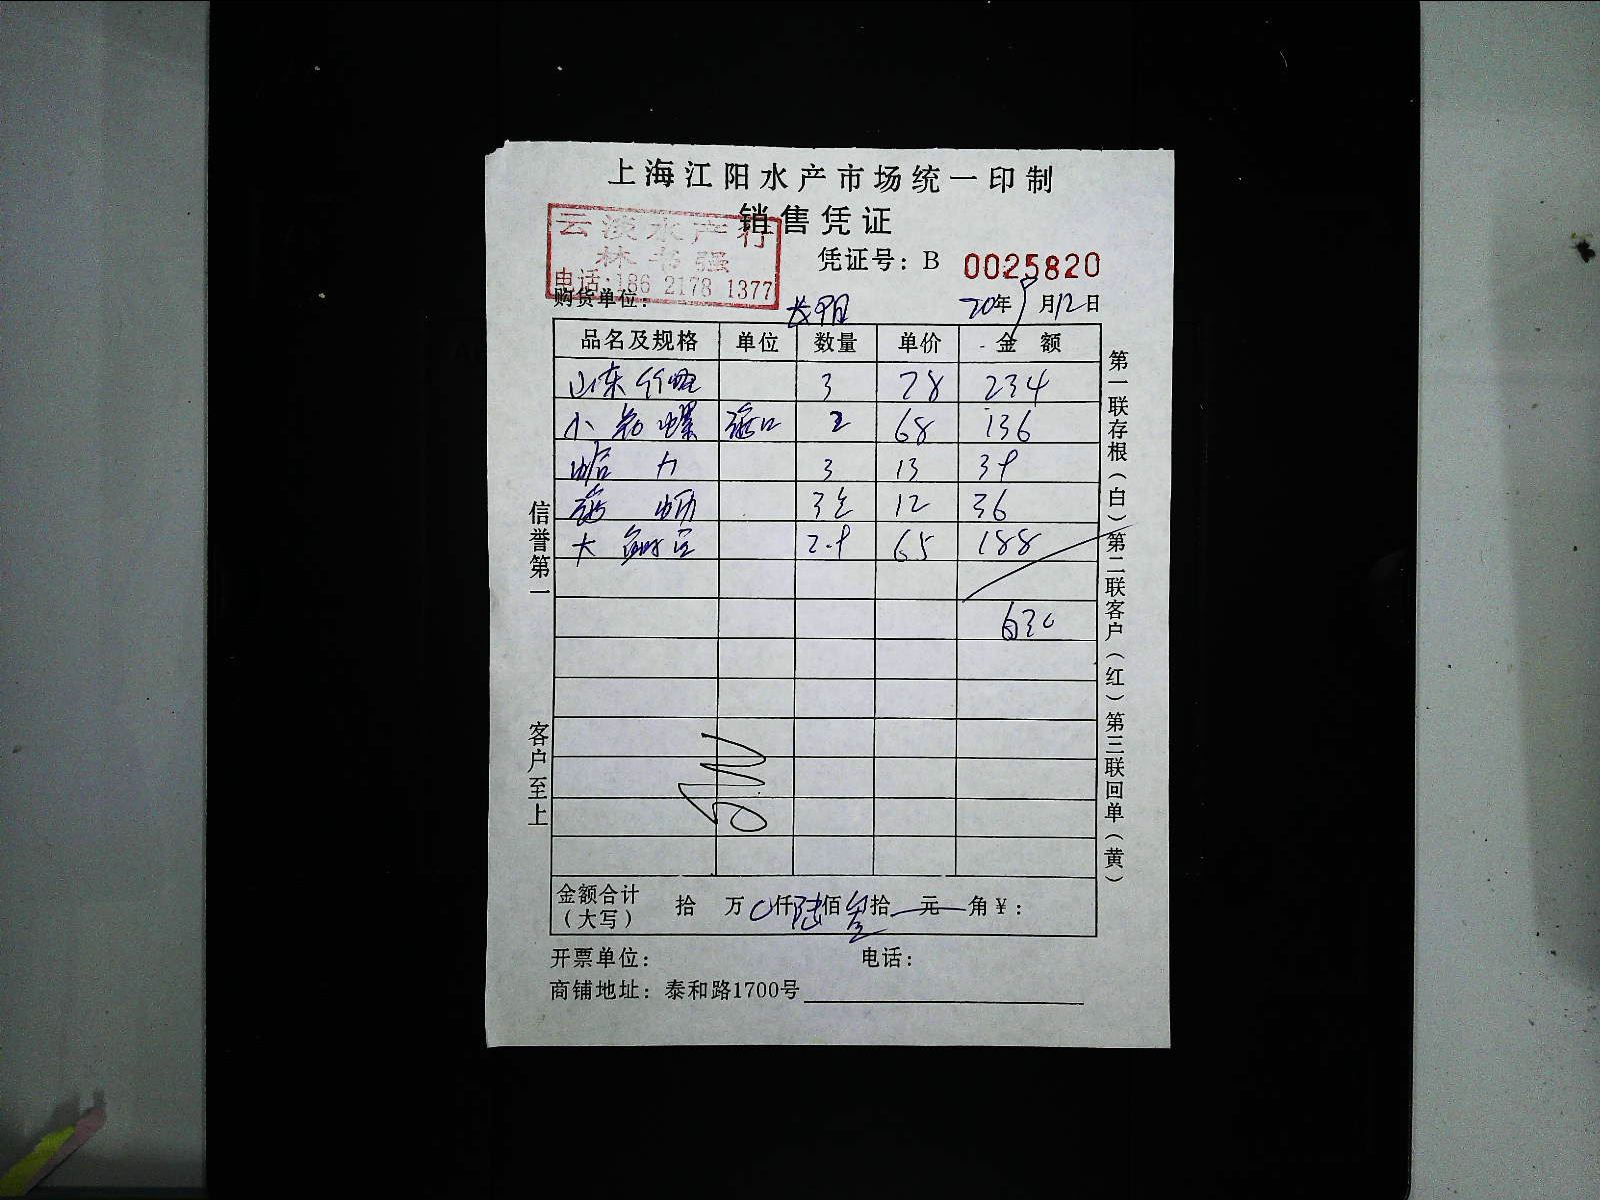 上海江阳水产市场统一印制
销售凭证
云淡水产行
林书强
电话:186 2178 1377
凭证号：B 0025820
购货单位： 长阳 20年9月12日
品名及规格 单位 数量 单价 金额
山东竹蛏 3 78 234
小花螺 海口 2 68 136
蛤力 3 13 39
海蛎 3 12 36
大 2.9 65 188
630
金额合计（大写） 拾 万 0仟 陆佰 叁拾 元 角 ¥：
开票单位： 电话：
商铺地址：泰和路1700号
信誉第一 客户至上
第一联存根（白）第二联客户（红）第三联回单（黄）